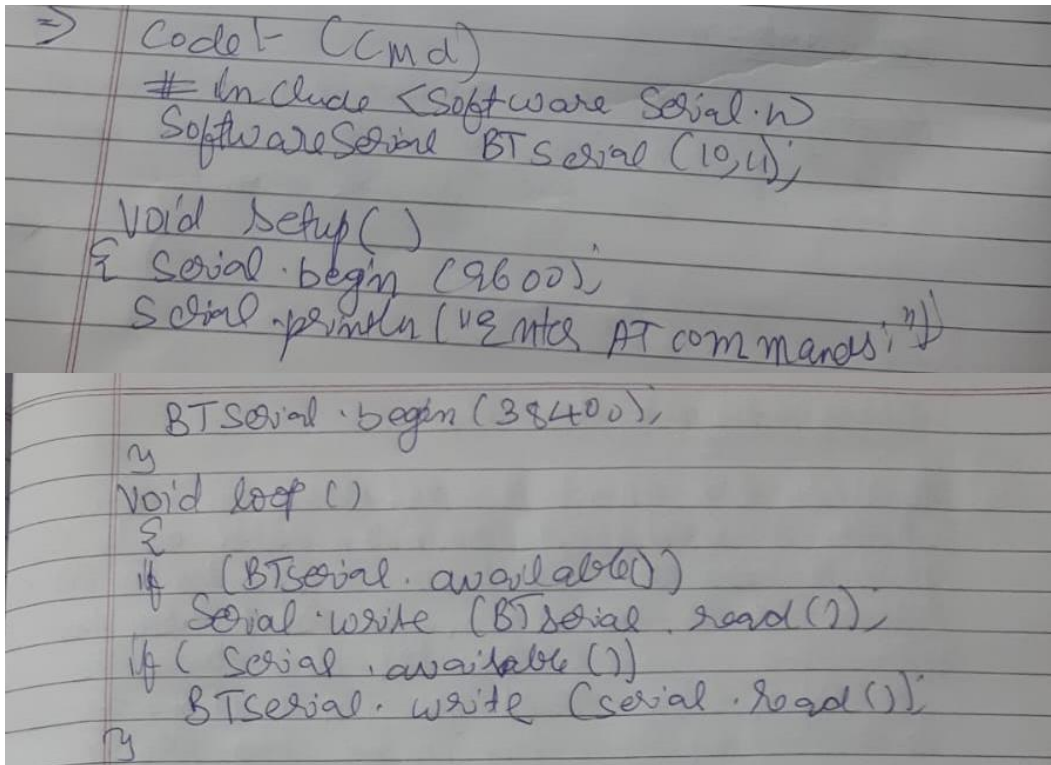 => Code :- (Cmd)
# Include <Software Serial.h>
SoftwareSerial BTSerial (10,11);
Void setup()
{ Serial.begin (9600);
Serial.println ("Enter AT commands:");
BTSerial.begin (38400);
}
Void loop ()
{
if (BTSerial.available())
Serial.write (BTSerial.read());
if (Serial.available())
BTSerial.write (Serial.read());
}